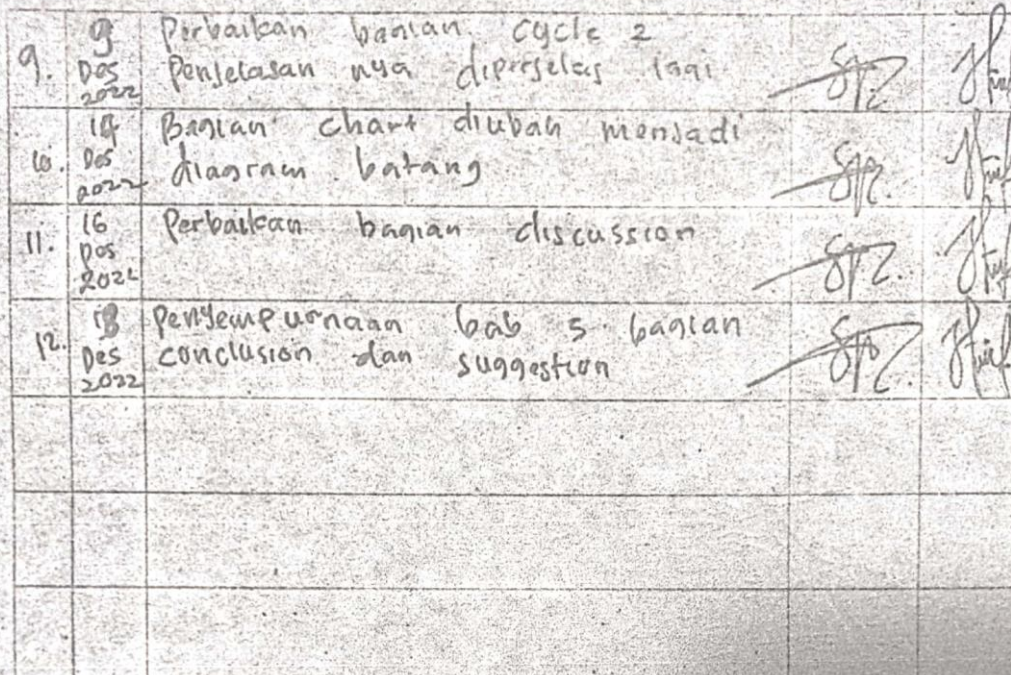 9. 9 Des 2022 Perbaikan bagian cycle 2
Penjelasan nya diperjelas lagi
10. 14 Des 2022 Bagian chart diubah menjadi
diagram batang
11. 16 Des 2022 Perbaikan bagian discussion
12. Des 2022 Penyempurnaan bab 5 bagian
conclusion dan suggestion